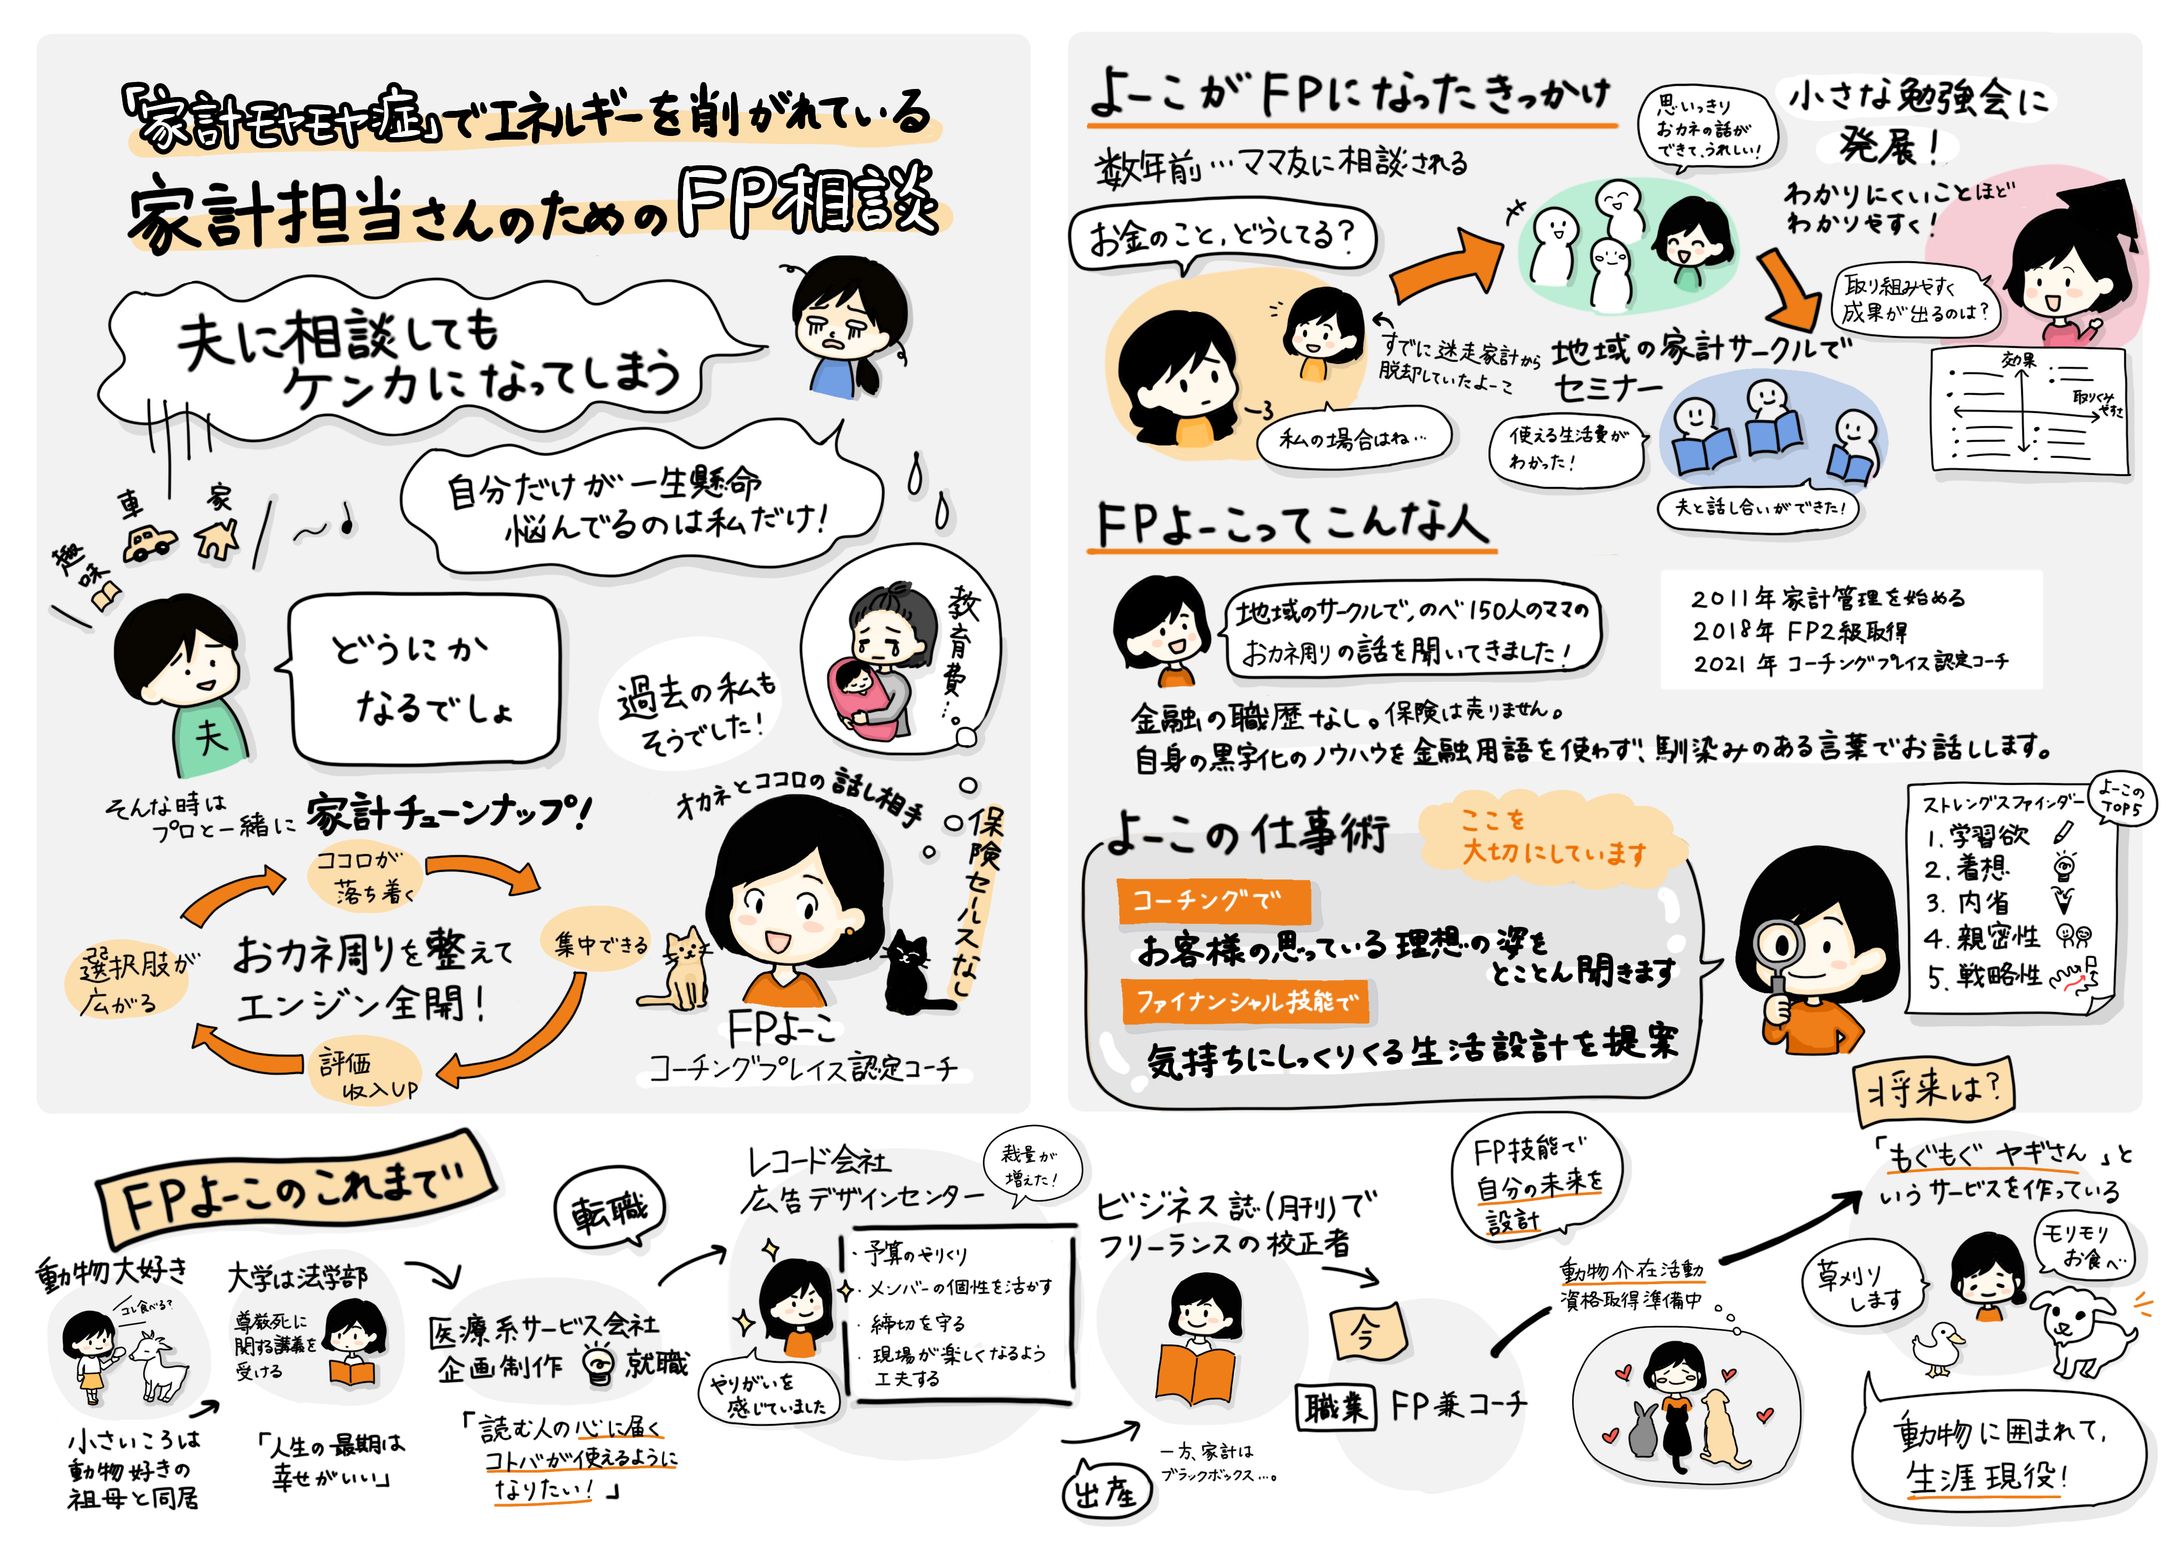 「家計モヤモヤ症」でエネルギーを削がれている
家計担当さんのためのFP相談
夫に相談しても
ケンカになってしまう
自分だけが一生懸命
悩んでるのは私だけ!
車
家
趣味
夫
どうにか
なるでしょ
過去の私も
そうでした!
教育費…。
そんな時は
プロと一緒に
家計チューンナップ!
ココロが
落ち着く
集中できる
評価
収入UP
選択肢が
広がる
おカネ周りを整えて
エンジン全開!
オカネとココロの話し相手
保険セールスなし
FPよーこ
コーチングプレイス認定コーチ
よーこがFPになったきっかけ
数年前…ママ友に相談される
お金のこと、どうしてる?
すでに迷走家計から
脱却していたよーこ
私の場合はね…
思いっきり
おカネの話が
できて、うれしい!
地域の家計サークルで
セミナー
使える生活費が
わかった!
夫と話し合いができた!
小さな勉強会に
発展!
わかりにくいことほど
わかりやすく!
取り組みやすく
成果が出るのは?
効果
取りくみ
やすさ
FPよーこってこんな人
地域のサークルで、のべ150人のママの
おカネ周りの話を聞いてきました!
2011年 家計管理を始める
2018年 FP2級取得
2021年 コーチングプレイス認定コーチ
金融の職歴なし。保険は売りません。
自身の黒字化のノウハウを金融用語を使わず、馴染みのある言葉でお話しします。
よーこの仕事術
ここを
大切にしています
コーチングで
お客様の思っている理想の姿を
とことん聞きます
ファイナンシャル技能で
気持ちにしっくりくる生活設計を提案
よーこの
TOP5
ストレングスファインダー
1. 学習欲
2. 着想
3. 内省
4. 親密性
5. 戦略性
FPよーこのこれまで
動物大好き
コレ食べる?
小さいころは
動物好きの
祖母と同居
大学は法学部
尊厳死に
関する講義を
受ける
「人生の最期は
幸せがいい」
医療系サービス会社
企画制作 就職
「読む人の心に届く
コトバが使えるように
なりたい!」
転職
レコード会社
広告デザインセンター
裁量が
増えた!
・予算のやりくり
・メンバーの個性を活かす
・締切を守る
・現場が楽しくなるよう
工夫する
やりがいを
感じていました
出産
ビジネス誌(月刊)で
フリーランスの校正者
一方、家計は
ブラックボックス…。
今
職業 FP兼コーチ
FP技能で
自分の未来を
設計
動物介在活動
資格取得準備中
将来は?
「もぐもぐヤギさん」と
いうサービスを作っている
草刈り
します
モリモリ
お食べ
動物に囲まれて、
生涯現役!